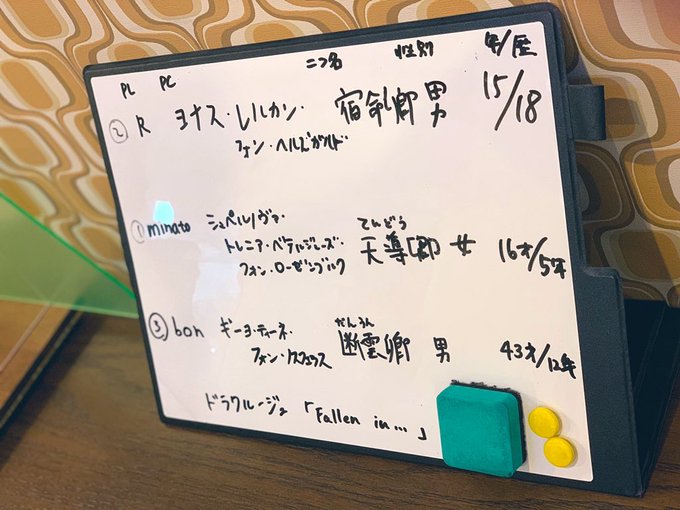 PL PC 二つ名 性別 年/歴
② R ヨナス・レルカン・ 宿命卿 男 15/18
フォン・ヘルズガルド
① minato シュペルノヴァ・ てんどう
トレニア・ベテルギウス・ 天導卿 女 16才/5年
フォン・ローゼンブルク
③ bon ギーヨ・ティーネ・ だんうん
フォン・ 断雲卿 男 43才/12年
ドラクルージュ 「Fallen in…」